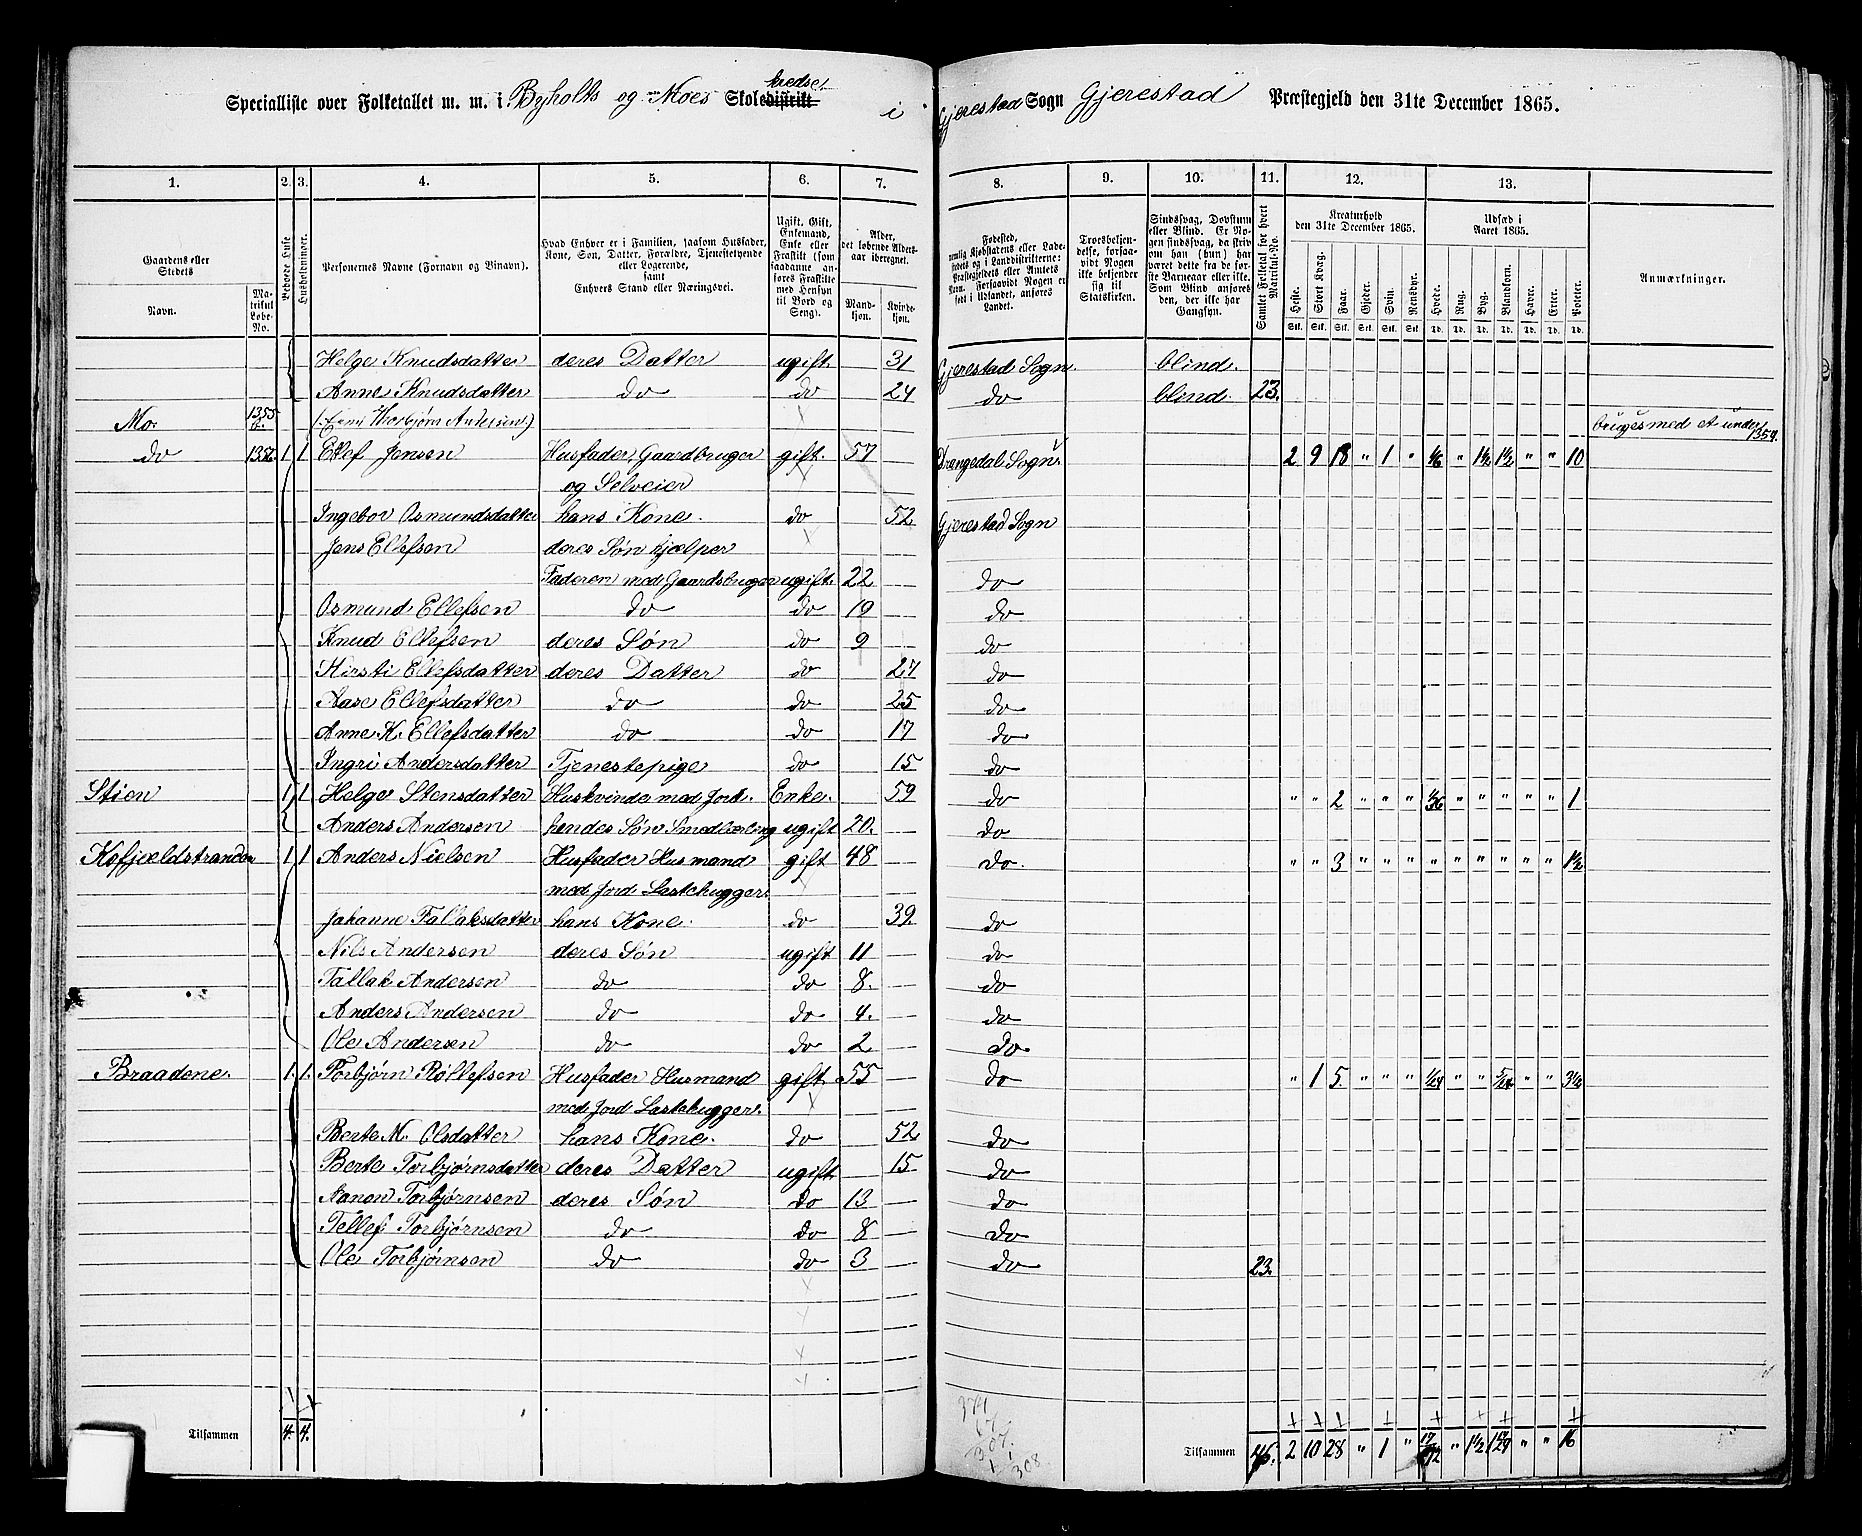 Specialliste over Folketallet m. m. i Byholts og Moes Skoledistrikt kredse i Gjerestad Sogn Gjerestad Præstegjeld den 31te December 1865.
1. 2. 3. 4. 5. 6. 7. 8. 9. 10. 11. 12. 13.
Gaardens eller Stedets
Navn.
Matrikul Løbe-No.
Beboede Huse
Husholdninger.
Personernes Navne (Fornavn og Tilnavn).
Hvad Enhver er i Familien, saasom Husfader, Kone, Søn, Datter, Forældre, Tjenestetyende eller Logerende, samt Enhvers Stand eller Næringsvei.
Ugift, Gift, Enkemand, Enke eller Fraskilt (som saadanne anføres Fraskilte med Hensyn til Bord og Seng).
Alder, det løbende Alders-aar iberegnet.
Mandkjøn. Kvindekjøn.
Fødested,
Troesbekjendelse, forsaavidt Nogen ikke bekjender sig til Statskirken.
Sindssvag, Døvstum eller Blind.
Samlet Folketal for hvert Matrikul-No.
Kreaturhold den 31te December 1865.
Heste. Stort Kvæg. Faar. Gjeder. Svin. Rensdyr.
Udsæd i Aaret 1865.
Hvede. Rug. Byg. Blandkorn. Havre. Erter. Poteter.
Anmærkninger.
Helge Knudsdatter deres Datter ugift. 31 Gjerestad Sogn. blind.
Anne Knudsdatter do do 24 do blind. 23.
Mo. 1355
bruges med et under 1354.
do 1 1 Ellef Jensen Husfader, Gaardbruger gift. 57 Drangedal Sogn 2 9 18 " 1 " 1/6 " 1½ 1½ " " 10
og Selveier
Ingebor Osmundsdatter hans Kone. do 52 Gjerestad Sogn
Jens Ellefsen deres Søn hjælper
Faderen med Gaardsbruget ugift. 22 do
Osmund Ellefsen do do 19 do
Knud Ellefsen deres Søn do 9 do
Kirsti Ellefsdatter deres Datter do 27 do
Aase Ellefsdatter do do 25 do
Anne K. Ellefsdatter do do 17 do
Ingri Andersdatter Tjenestepige do 15 do
Stien 1 1 Helge Stensdatter Huskvinde med Jord. Enke. 59 do " " 2 " " " 1/36 " " " " " 1
Anders Andersen hendes Søn Smedlærling ugift 20. do
Kofjældstranden 1 1 Anders Nielsen Husfader Husmand gift 48 do. " " 3 " " " " " " " " " 1½
med Jord
Johanne Tallaksdatter hans Kone. do 39. do
Nils Andersen deres Søn ugift 11 do
Tallak Andersen do do 8. do
Anders Andersen do do 4. do
Ole Andersen do do 2 do
Braadene. 1. 1. Torbjørn Rollefsen Husfader Husmand gift 55 do " 1 5. " " " 1/24 " " 5/24 " " 3½
med Jord
Berte M. Olsdatter hans Kone. do 52 do
Berte Torbjørnsdatter deres Datter ugift. 15. do
Aanon Torbjørnsen deres Søn do 13 do
Tellef Torbjørnsen do do 8 do
Ole Torbjørnsen do do 3 do 23.
Tilsammen 4. 4. Tilsammen 46. 2 10 28 " 1 " 17/72 " 1½ " " 16
374
67.
307.
1
308